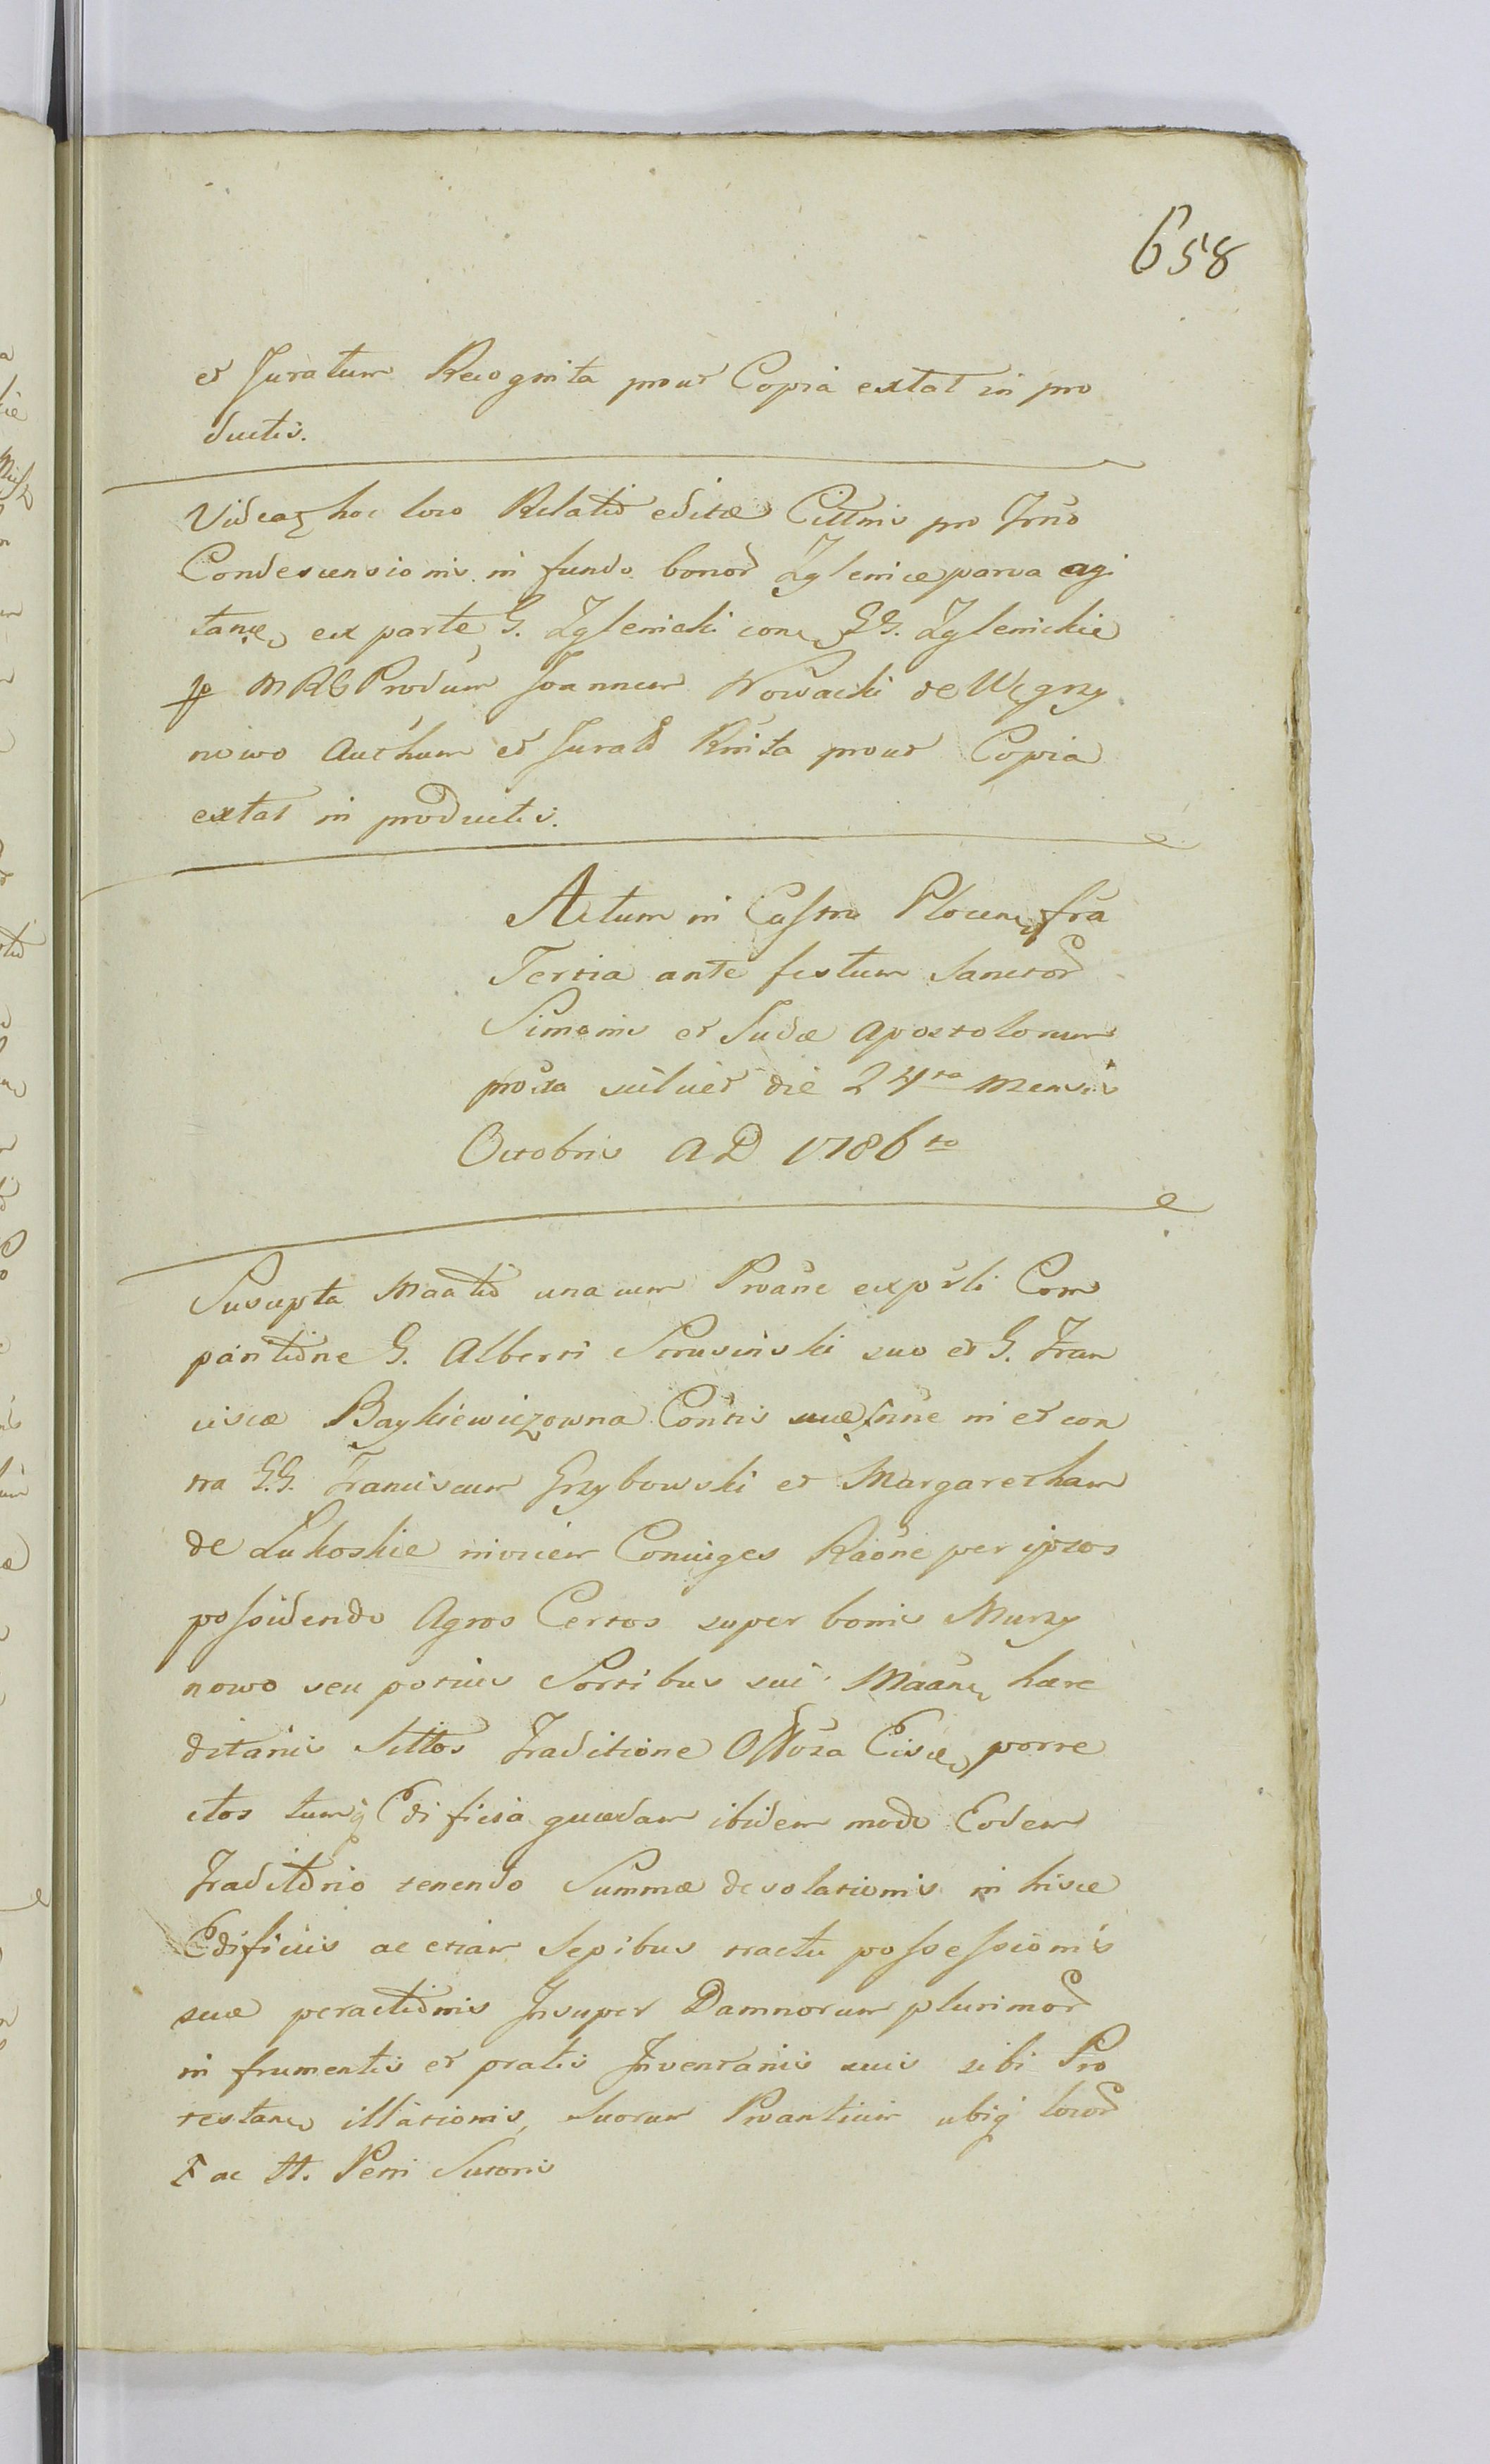 658
et Juratum Recognita prout Copia extat in pro
ductis.
Videat hoc loco Relatio editæ Cittnis pro Jrno
Condescensionis in fundo bonor Zglenice parva agi
tanæ, ex parte G. Zglenicki con GG. Zglenickie
p MRG Produm Joannem Nowacki de Węgrzy
nowo Authum et Jurato Rnita prout Copia
extat in productis.
Actum in Castro Plocen fra
Tertia ante festum Sanctor
Simonis et Judæ Apostolorum
proxa scilicet die 24ta Mensis
Octobris AD 1786to
Suscepta Maatio una cum Proane expsli Com
paritione G. Alberti Strusinski suo et G. Fran
ciscæ Baykiewiczowna Contis suæ Nne in et con
tra G.G. Franciscum Grzybowski et Margaretham
de Lukoskie invicem Coniuges Raone per ipsos
possidendo Agros Certos super bonis Murzy
nowo seu potius Sortibus sui Maan hære
ditariis Sittos Traditione Eisæ porre
ctos tumq Edificia quædam ibidem modo Eodem
Traditorio tenendo Summæ desolationis in hisce
Edificiis ac etiam Sepibus tractu possessionis
suæ peractionis Insuper Damnorum plurimor
in frumentis et pratis Inventariis suis sibi Pro
testan illationis, Suorum Proantium ubiq locor
ac H. Petri Sutoris